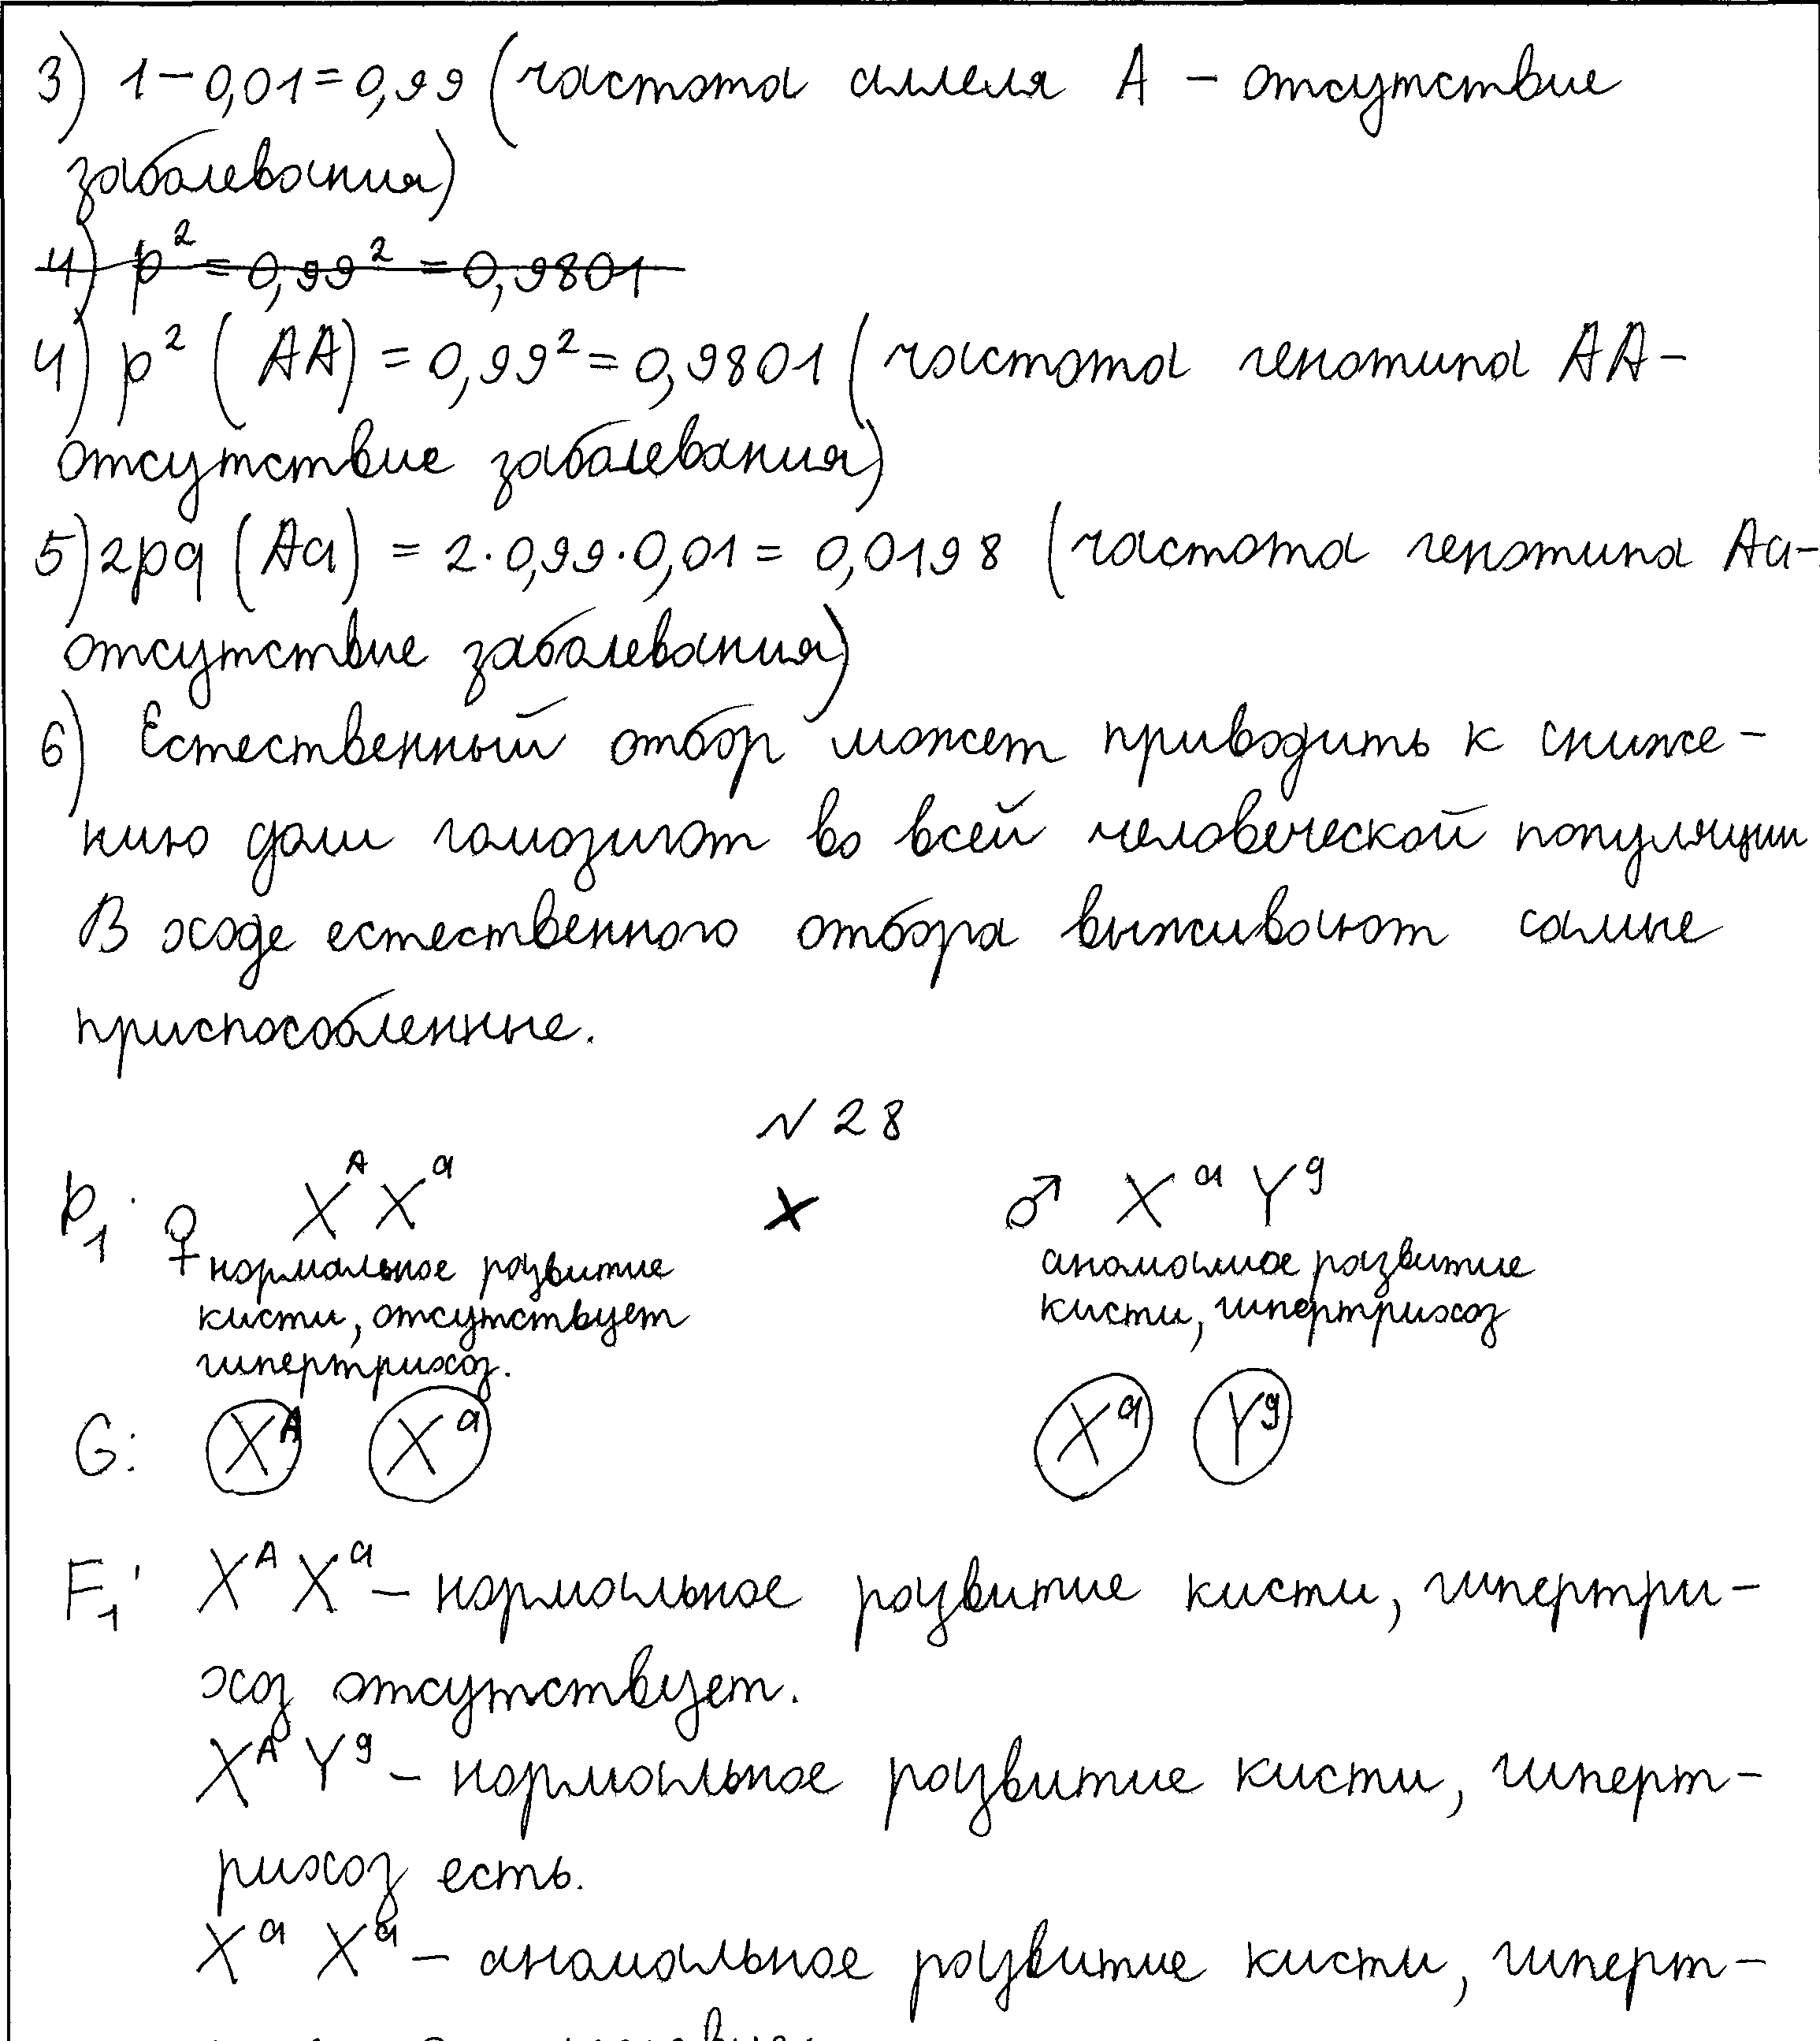 3) 1 – 0,01 = 0,99 (частота аллеля A – отсутствие
заболевания)
4) p² = 0,99² = 0,9801
4) p² (AA) = 0,99² = 0,9801 (частота генотипа AA –
отсутствие заболевания)
5) 2pq (Aa) = 2·0,99·0,01 = 0,0198 (частота генотипа Aa –
отсутствие заболевания)
6) Естественный отбор может приводить к сниже –
нию доли гомозигот во всей человеческой популяции
В ходе естественного отбора выживают самые
приспособленные.
№ 28
P₁: ♀ XᴬXᵃ × ♂ XᵃYᵍ
нормальное развитие аномалное развитие
кисти, отсутствует кисти, гипертрихоз
гипертрихоз.
G: Xᴬ Xᵃ Xᵃ Yᵍ
F₁: XᴬXᵃ – нормальное развитие кисти, гипертри –
хоз отсутствует.
XᴬYᵍ – нормальное развитие кисти, гиперт –
рихоз есть.
XᵃXᵃ – аномальное развитие кисти, гиперт –